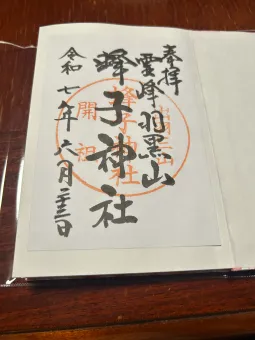 奉拝
霊峰羽黒山
蜂子神社
令和七年六月二十三日
開祖
蜂子神社